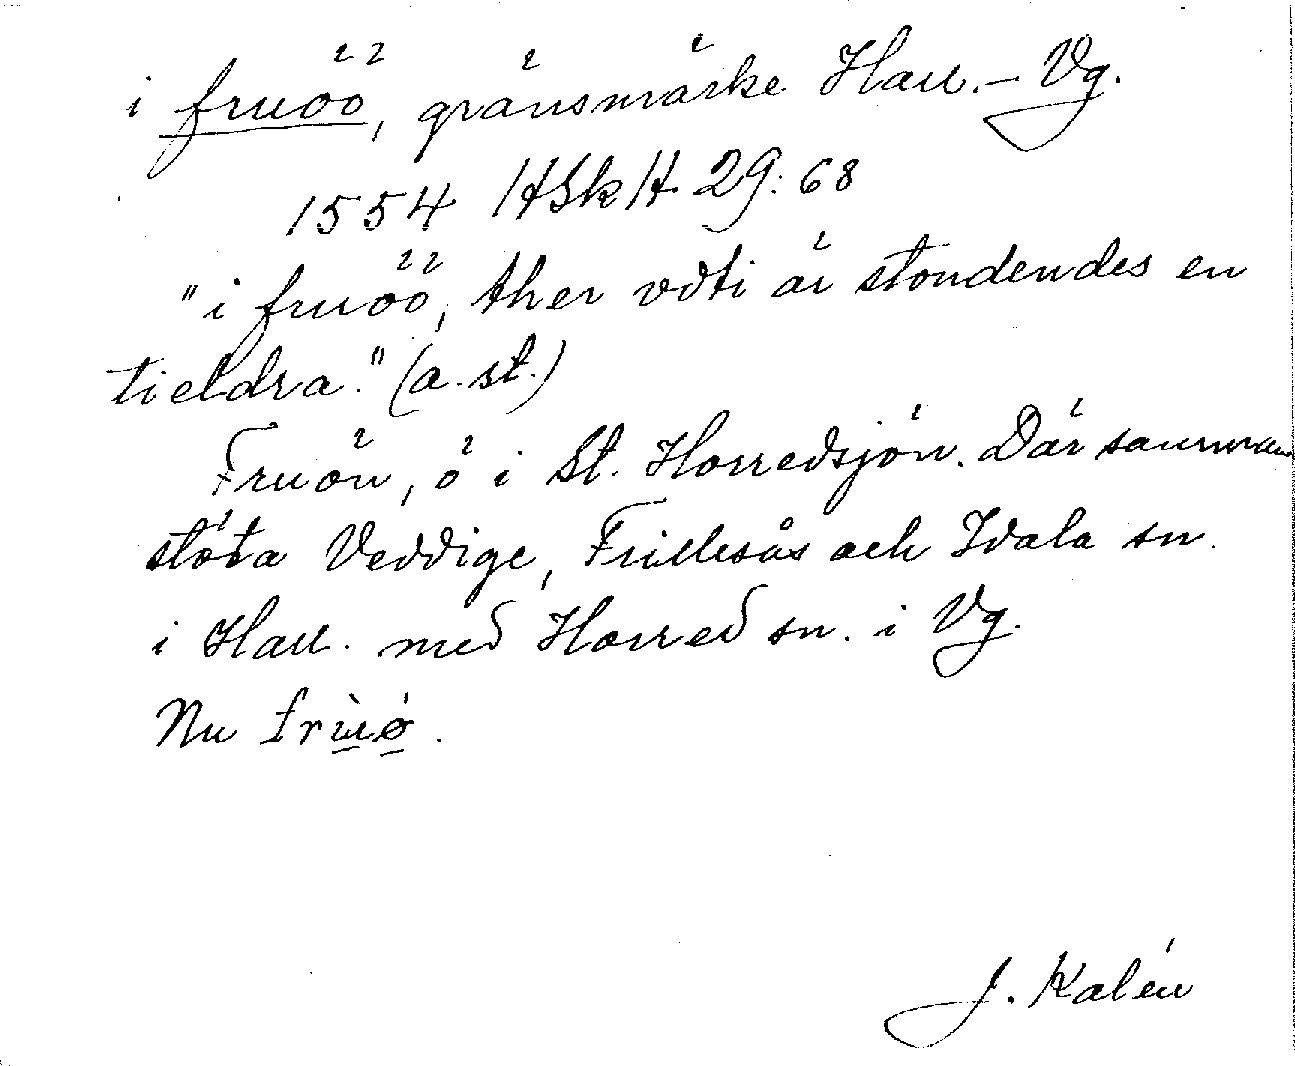 i fruöö, gränsmärke Hall. – Vg.
1554 HSkH 29:68
"i fruöö, ther vdti är stondendes en
tieldra." (a. st.)
Fruön, ö i St. Horredsjön. Där samman
stöta Veddige, Frillesås och Idala sn.
i Hall. med Horred sn. i Vg.
Nu frùǿ.
J. Kalén